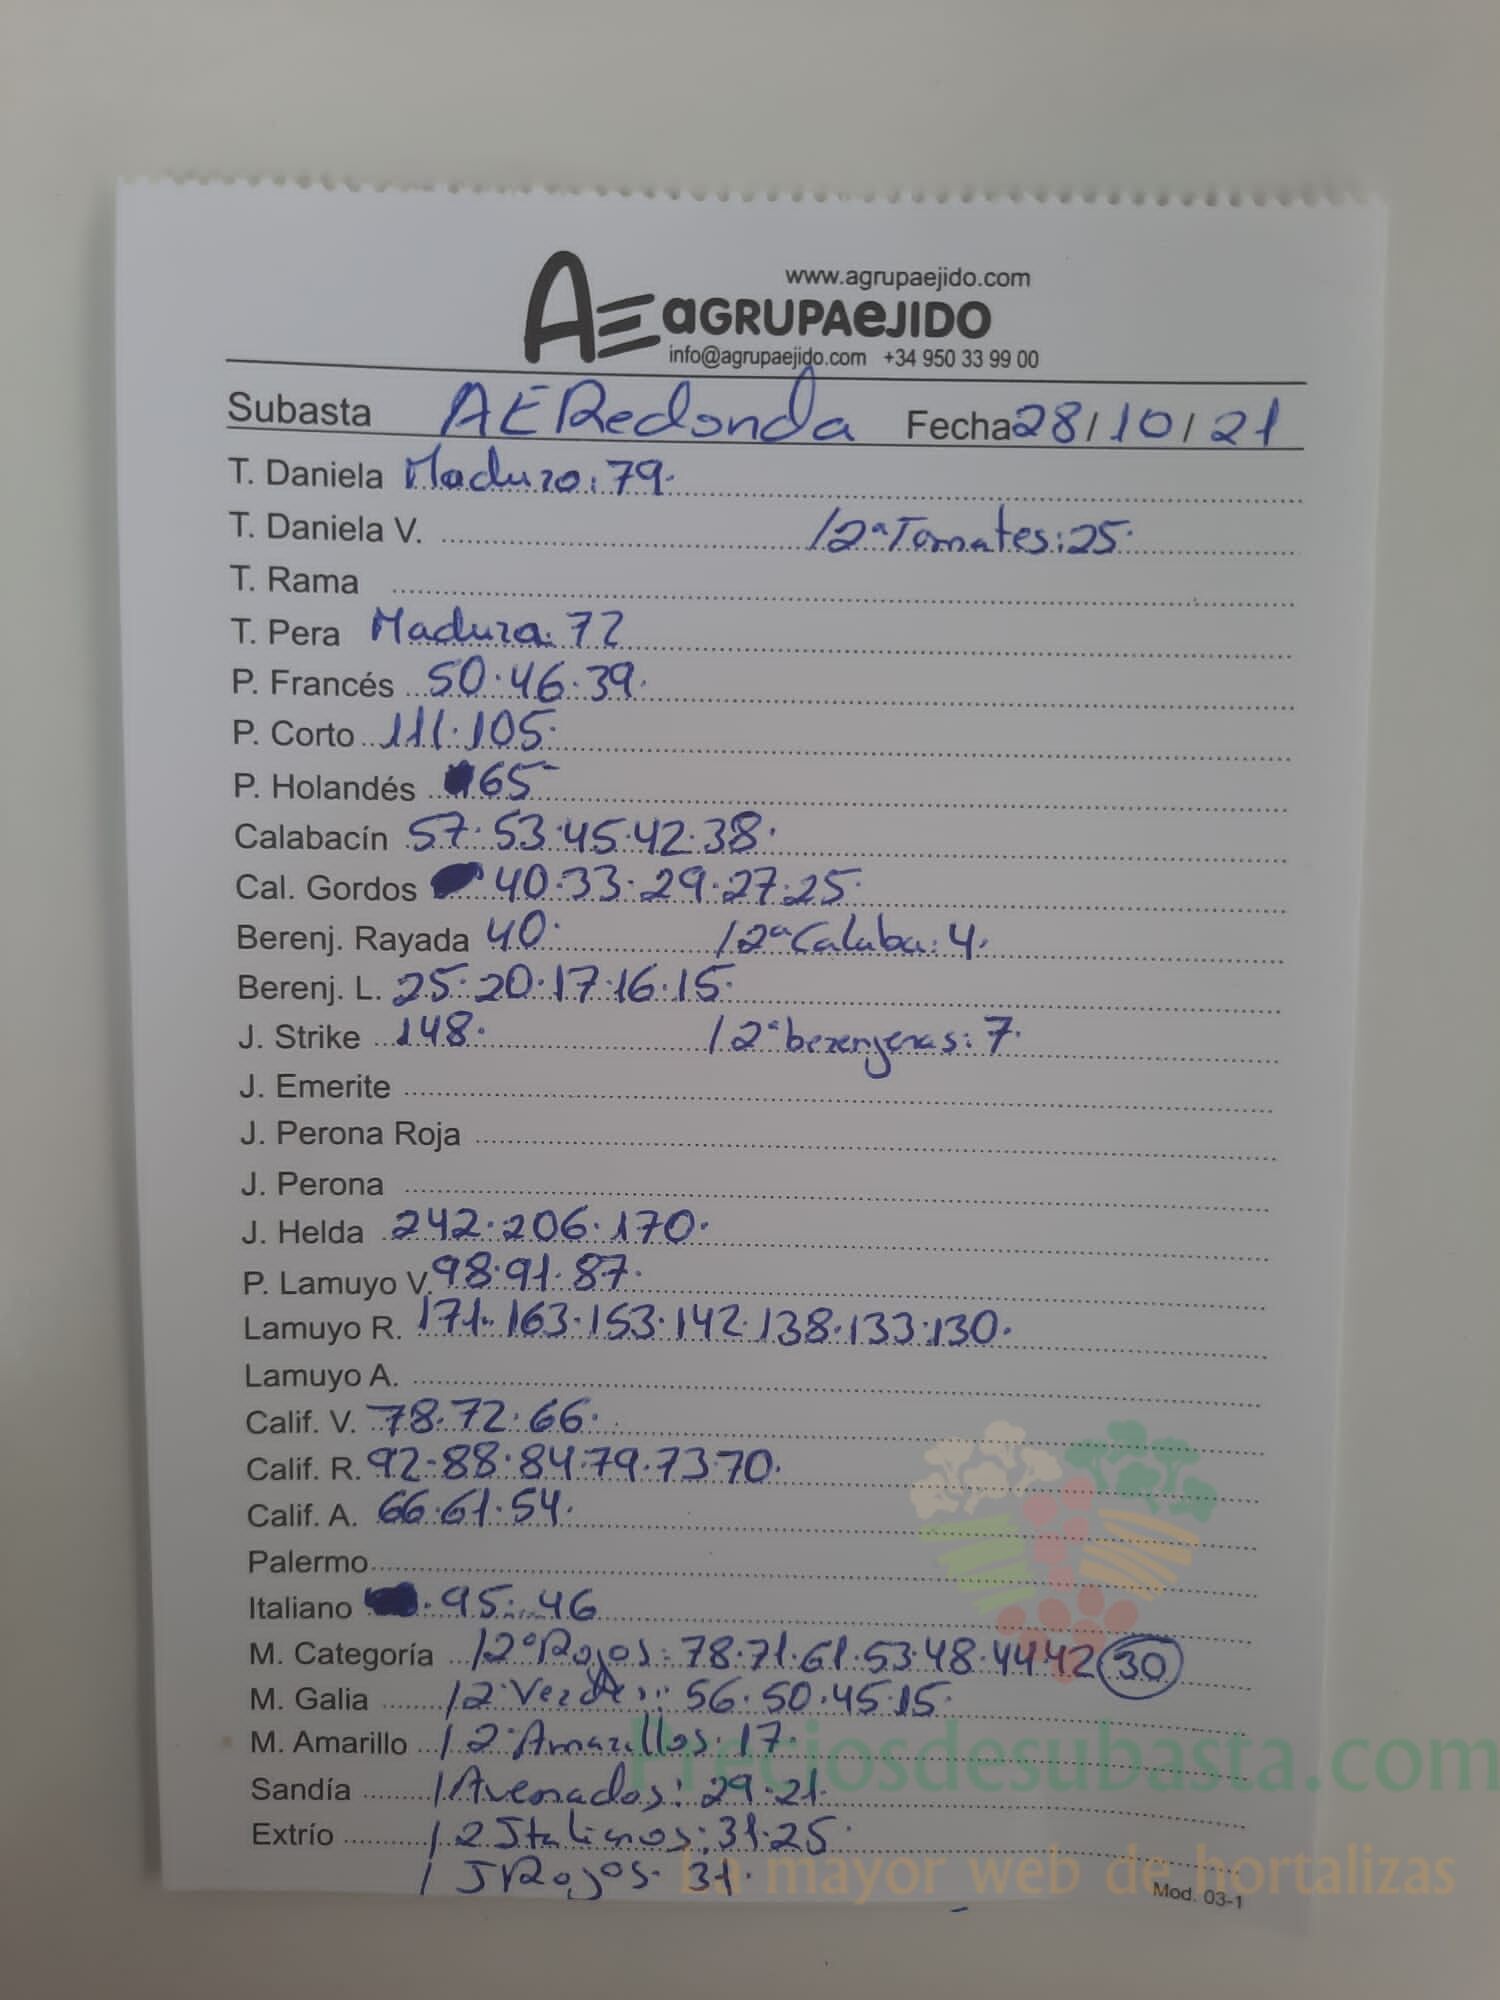 www.agrupaejido.com
AE aGRUPAeJIDO
info@agrupaejido.com +34 950 33 99 00
Subasta AERedonda Fecha 28/10/21
T. Daniela Maduro: 79.
T. Daniela V. /2ªTomates: 25.
T. Rama
T. Pera Madura. 72
P. Francés 50.46.39.
P. Corto 111.105.
P. Holandés 65
Calabacín 57.53.45.42.38.
Cal. Gordos 40.33.29.27.25.
Berenj. Rayada 40. /2ªCalaba: 4.
Berenj. L. 25.20.17.16.15.
J. Strike 148. /2ªberenjenas: 7.
J. Emerite
J. Perona Roja
J. Perona
J. Helda 242.206.170.
P. Lamuyo V. 98.91.87.
Lamuyo R. 171.163.153.142.138.133.130.
Lamuyo A.
Calif. V. 78.72.66.
Calif. R. 92-88.84.79.73.70.
Calif. A. 66.61.54.
Palermo
Italiano .95.46
M. Categoría /2ºRojos: 78.71.61.53.48.44.42 30
M. Galia /2ºVerdes: 56.50.45.15.
M. Amarillo /2ºAmarillos: 17.
Preciosdesubasta.com
Sandía /Asomados: 29.21.
Extrío /2 Italianos: 31.25.
/ JRojos. 31.
La mayor web de hortalizas
Mod. 03-1